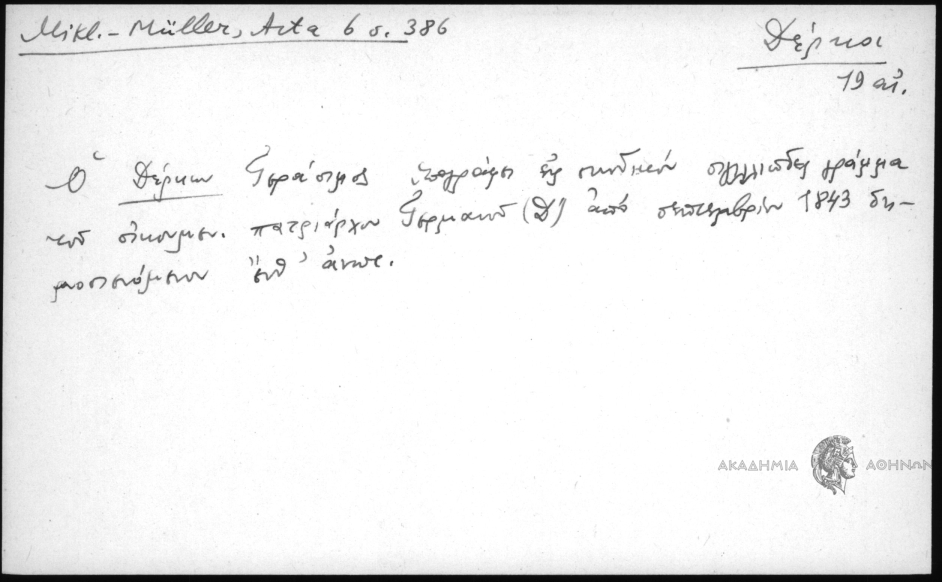 Mikl.-Müller, Acta 6 σ. 386
Δέρκοι
19 αἰ.
Ὁ Δέρκων Γεράσιμος ὑπογράφει εἰς συνοδικόν σιγιλλιῶδες γράμμα
τοῦ οἰκουμεν. πατριάρχου Γερμανοῦ (Δ') ἀπό σεπτεμβρίου 1843 δη-
μοσιευόμενον ἔνθ' ἀνωτ.
ΑΚΑΔΗΜΙΑ ΑΘΗΝΩΝ